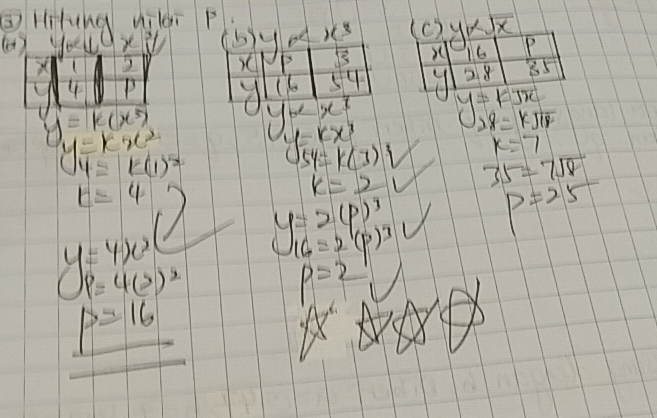 ③ Hitung nilai P.
(a) y ∝ x²
x 1 2
y 4 P
y = k(x²)
y = kx²
4 = k(1)²
k = 4
y = 4x²
P = 4(2)²
P = 16
(b) y ∝ x³
x P 3
y 16 54
y ∝ x³
y = kx³
54 = k(3)³
k = 2
y = 2(P)³
16 = 2(P)³
P = 2
(c) y ∝ √x
x 16 P
y 28 35
y = k√x
28 = k√16
k = 7
35 = 7√P
P = 25